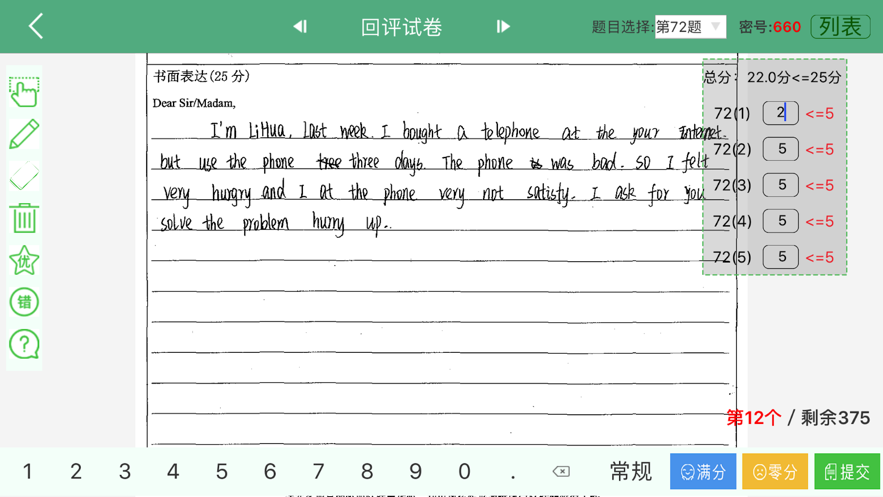 回评试卷
题目选择: 第72题 密号:660 列表
书面表达(25 分)
Dear Sir/Madam,
I'm LiHua, last week. I bought a telephone at the your Internet.
but use the phone three days. The phone was bad. so I felt
very hungry and I at the phone very not satisfy. I ask for you
solve the problem hurry up.
总分: 22.0分<=25分
72(1) 2 <=5
72(2) 5 <=5
72(3) 5 <=5
72(4) 5 <=5
72(5) 5 <=5
优
错
第12个 / 剩余375
1 2 3 4 5 6 7 8 9 0 . 常规 满分 零分 提交